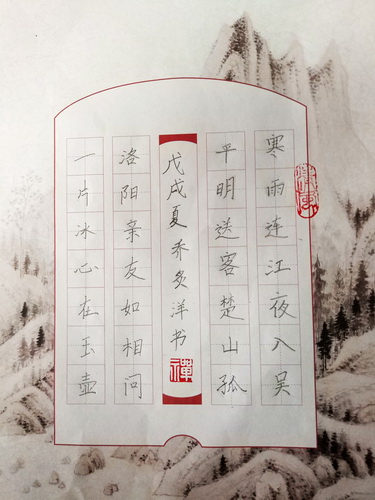 寒雨连江夜入吴
平明送客楚山孤
戊戌夏乔炙洋书
洛阳亲友如相问
一片冰心在玉壶
禅